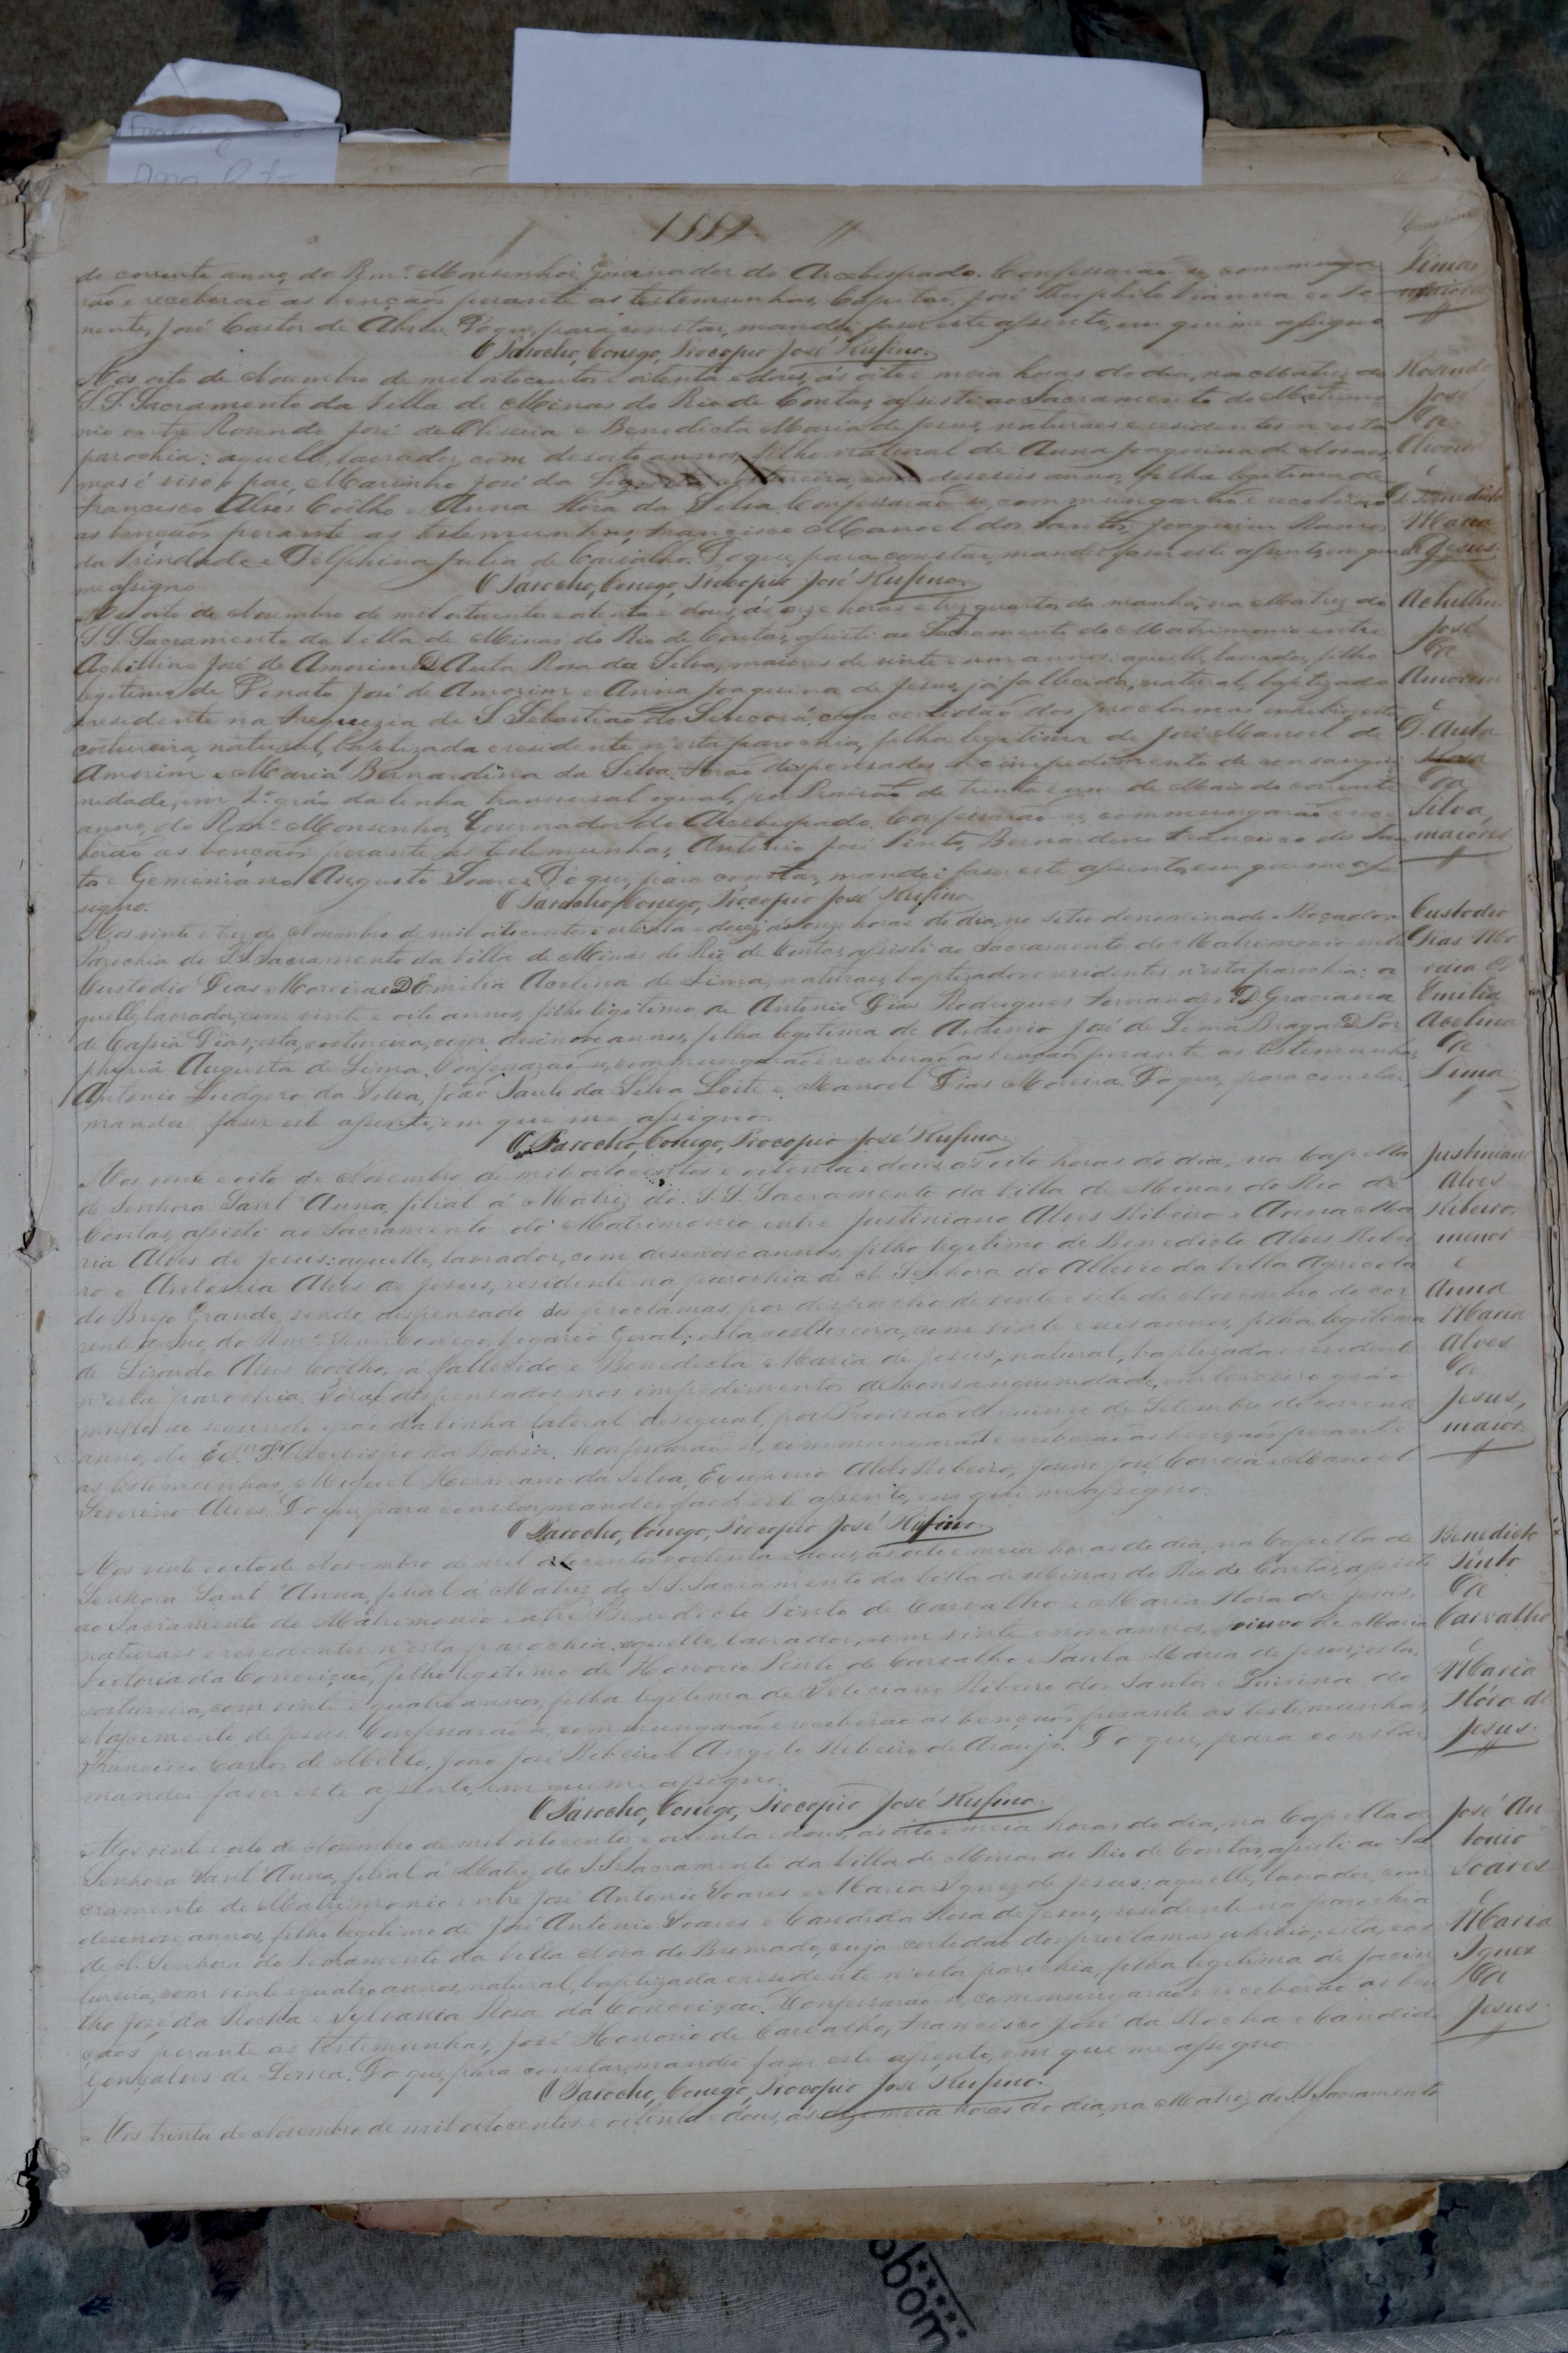 1882
do corrente anno, do Rmº Monsenhor Governador do Arcebispado. Confessarão se, commungar
rão e receberão as bençãos perante as testemunhas, Capitão, José Theophilo Vianna e o Te
nente, José Castor de Abreu. Do que, para constar, mandei faser este assento, em que me assigno
O Parocho, Conego, Procopio José Rufino.
Lima
maiores
Aos oito de Novembro de mil oitocentos e oitenta e dous, ás oito e meia horas do dia, na Matriz do
S.S. Sacramento da Villa de Minas do Rio de Contas, assisti ao Sacramento do Matrimo
nio entre Rosendo José de Oliveira e Benedicta Maria de Jesus, naturaes e residentes n'esta
parochia: aquelle, lavrador, com desoito annos, filho natural de Anna Joaquina de Novaes,
mas é vivo o pae, Marinho José da costureira, com deseseis annos, filha legitima de
Francisco Alves Coêlho e Anna Flóra da Silva. Confessarão se, commungarão e receberão
as bençãos perante as testemunhas, Francisco Manoel dos Santos, Joaquim Ramos
da Trindade e Delphina Julia de Carvalho. Do que, para constar, mandei faser este assento, em que
me assigno.
O Parocho, Conego, Procopio José Rufino.
Rosendo
José
de
Oliveira
e
Benedicta
Maria
de Jesus.
Aos oito de Novembro de mil oitocentos e oitenta e dous, ás onze horas e trez quartos da manhã, na Matriz do
S.S. Sacramento da Villa de Minas do Rio de Contas, assisti ao Sacramento do Matrimonio entre
Achillino José de Amorim e D. Auta Rosa da Silva, maiores de vinte e um annos: aquelle, lavrador, filho
legitimo de Donato José de Amorim e Anna Joaquina de Jesus, já fallecida, natural, baptizado
e residente na freguezia de S. Sebastião do Sincorá, cuja certidão dos proclamas exhibio; esta
costureira, natural, baptizada e residente n'esta parochia, filha legitima de José Manoel de
Amorim e Maria Bernardina da Silva. Forão dispensados no impedimento de consangui
nidade, em 2º gráo da linha transversal egual, por Provisão de trinta e um de Maio do corrente
anno, do Rmº Monsenhor Governador do Arcebispado. Confessarão se, commungarão e rece
berão as bençãos perante as testemunhas, Antonio José Pinto, Bernardino Francisco dos San
tos e Geminiano Augusto Soares. Do que, para constar, mandei faser este assento, em que me as
signo.
O Parocho, Conego, Procopio José Rufino.
Achillino
José
de
Amorim
e
D. Auta
Rosa
da
Silva,
maiores
Aos vinte e trez de Novembro de mil oitocentos e oitenta e dous, ás onze horas do dia, no sitio denominado Roçador
Parochia do S.S. Sacramento da Villa de Minas do Rio de Contas, assisti ao Sacramento do Matrimonio entre
Custodio Dias Moreira e D. Emilia Avelina de Lima, naturaes, baptizados e residentes n'esta parochia: a
quelle, lavrador, com vinte e oito annos, filho legitimo de Antonio Dias Rodrigues Fernandes e D. Graciana
de Cassia Dias; esta, costureira, com desenove annos, filha legitima de Antonio José de Lima Braga e D. Por
phyria Augusta de Lima. Confessarão se, commungarão e receberão as bençãos perante as testemunhas,
Antonio Ludgero da Silva, João Paulo da Silva Leite e Manoel Dias Moreira. Do que, para constar,
mandei faser este assento, em que me assigno.
O Parocho, Conego, Procopio José Rufino.
Custodio
Dias Mo
reira e
Emilia
Avelina
de
Lima
Aos vinte e oito de Novembro de mil oitocentos e oitenta e dous, ás oito horas do dia, na Capella
de Senhora Sant'Anna, filial á Matriz do S.S. Sacramento da Villa de Minas do Rio de
Contas, assisti ao Sacramento do Matrimonio entre Justiniano Alves Ribeiro e Anna Ma
ria Alves de Jesus: aquelle, lavrador, com desenove annos, filho legitimo de Benedicto Alves Ribei
ro e Antonia Alves de Jesus, residente na parochia de N. Senhora do Allivio da Villa Agricola
do Brejo Grande, sendo dispensado dos proclamas por despacho de vinte e sete de Novembro do cor
rente anno, do Rmº Senr. Conego, Vigario Geral; esta, costureira, com vinte e seis annos, filha legitima
de Lizardo Alves Coelho, já fallecido, e Benedicta Maria de Jesus, natural, baptizada e residente
n'esta parochia. Forão dispensados nos impedimentos de consanguinidade, em terceiro gráo
mixto ao segundo gráo da linha lateral desegual, por Provisão de quinze de Setembro do corrente
anno, do Exmº Sr Arcebispo da Bahia. Confessarão se, commungarão e receberão as bençãos perante
as testemunhas, Miguel Hermano da Silva, Alves Ribeiro, José Correia e Manoel
Severino Alves. Do que, para constar, mandei faser este assento, em que me assigno.
O Parocho, Conego, Procopio José Rufino.
Justiniano
Alves
Ribeiro,
menor
e
Anna
Maria
Alves
de
Jesus,
maior.
Aos vinte e oito de Novembro de mil oitocentos e oitenta e dous, ás oito e meia horas do dia, na Capella de
Senhora Sant'Anna, filial á Matriz do S.S. Sacramento da Villa de Minas do Rio de Contas, assisti
ao Sacramento do Matrimonio entre Benedicto Pinto de Carvalho e Maria Flóra de Jesus,
naturaes e residentes n'esta parochia: aquelle, lavrador, com vinte e nove annos, viuvo de Maria
Victoria da Conceição, filho legitimo de Honorio Pinto de Carvalho e Paula Maria de Jesus; esta,
costureira, com vinte e quatro annos, filha legitima de Feliciano Ribeiro dos Santos e Quirina do
Nascimento de Jesus. Confessarão se, commungarão e receberão as bençãos perante as testemunhas,
Francisco Carlos de Mello, João José Ribeiro e Angelo Ribeiro de Araujo. Do que, para constar,
mandei faser este assento, em que me assigno.
O Parocho, Conego, Procopio José Rufino.
Benedicto
Pinto
de
Carvalho
e
Maria
Flóra de
Jesus.
Aos vinte e oito de Novembro de mil oitocentos e oitenta e dous, ás oito e meia horas do dia, na Capella de
Senhora Sant'Anna, filial á Matriz do S.S. Sacramento da Villa de Minas do Rio de Contas, assisti ao Sa
cramento do Matrimonio entre José Antonio Soares e Maria Ignez de Jesus: aquelle, lavrador, com
desenove annos, filho legitimo de José Antonio Soares e Candida Rosa de Jesus, residente na parochia
de N. Senhora do Livramento da Villa Nova do Brumado, cuja certidão dos proclamas exhibio; esta, cos
tureira, com vinte e quatro annos, natural, baptizada e residente n'esta parochia, filha legitima de Jacin
tho José da Rocha e Sylvania Rosa da Conceição. Confessarão se, commungarão e receberão as ben
çãos perante as testemunhas, José Honorio de Carvalho, Francisco José da Rocha e Candido
Gonçalves de Lima. Do que, para constar, mandei faser este assento, em que me assigno.
O Parocho, Conego, Procopio José Rufino.
José An
tonio
Soares
e
Maria
Ignez
de
Jesus.
Aos trinta de Novembro de mil oitocentos e oitenta e dous, ás meia horas do dia, na Matriz do S.S. Sacramento